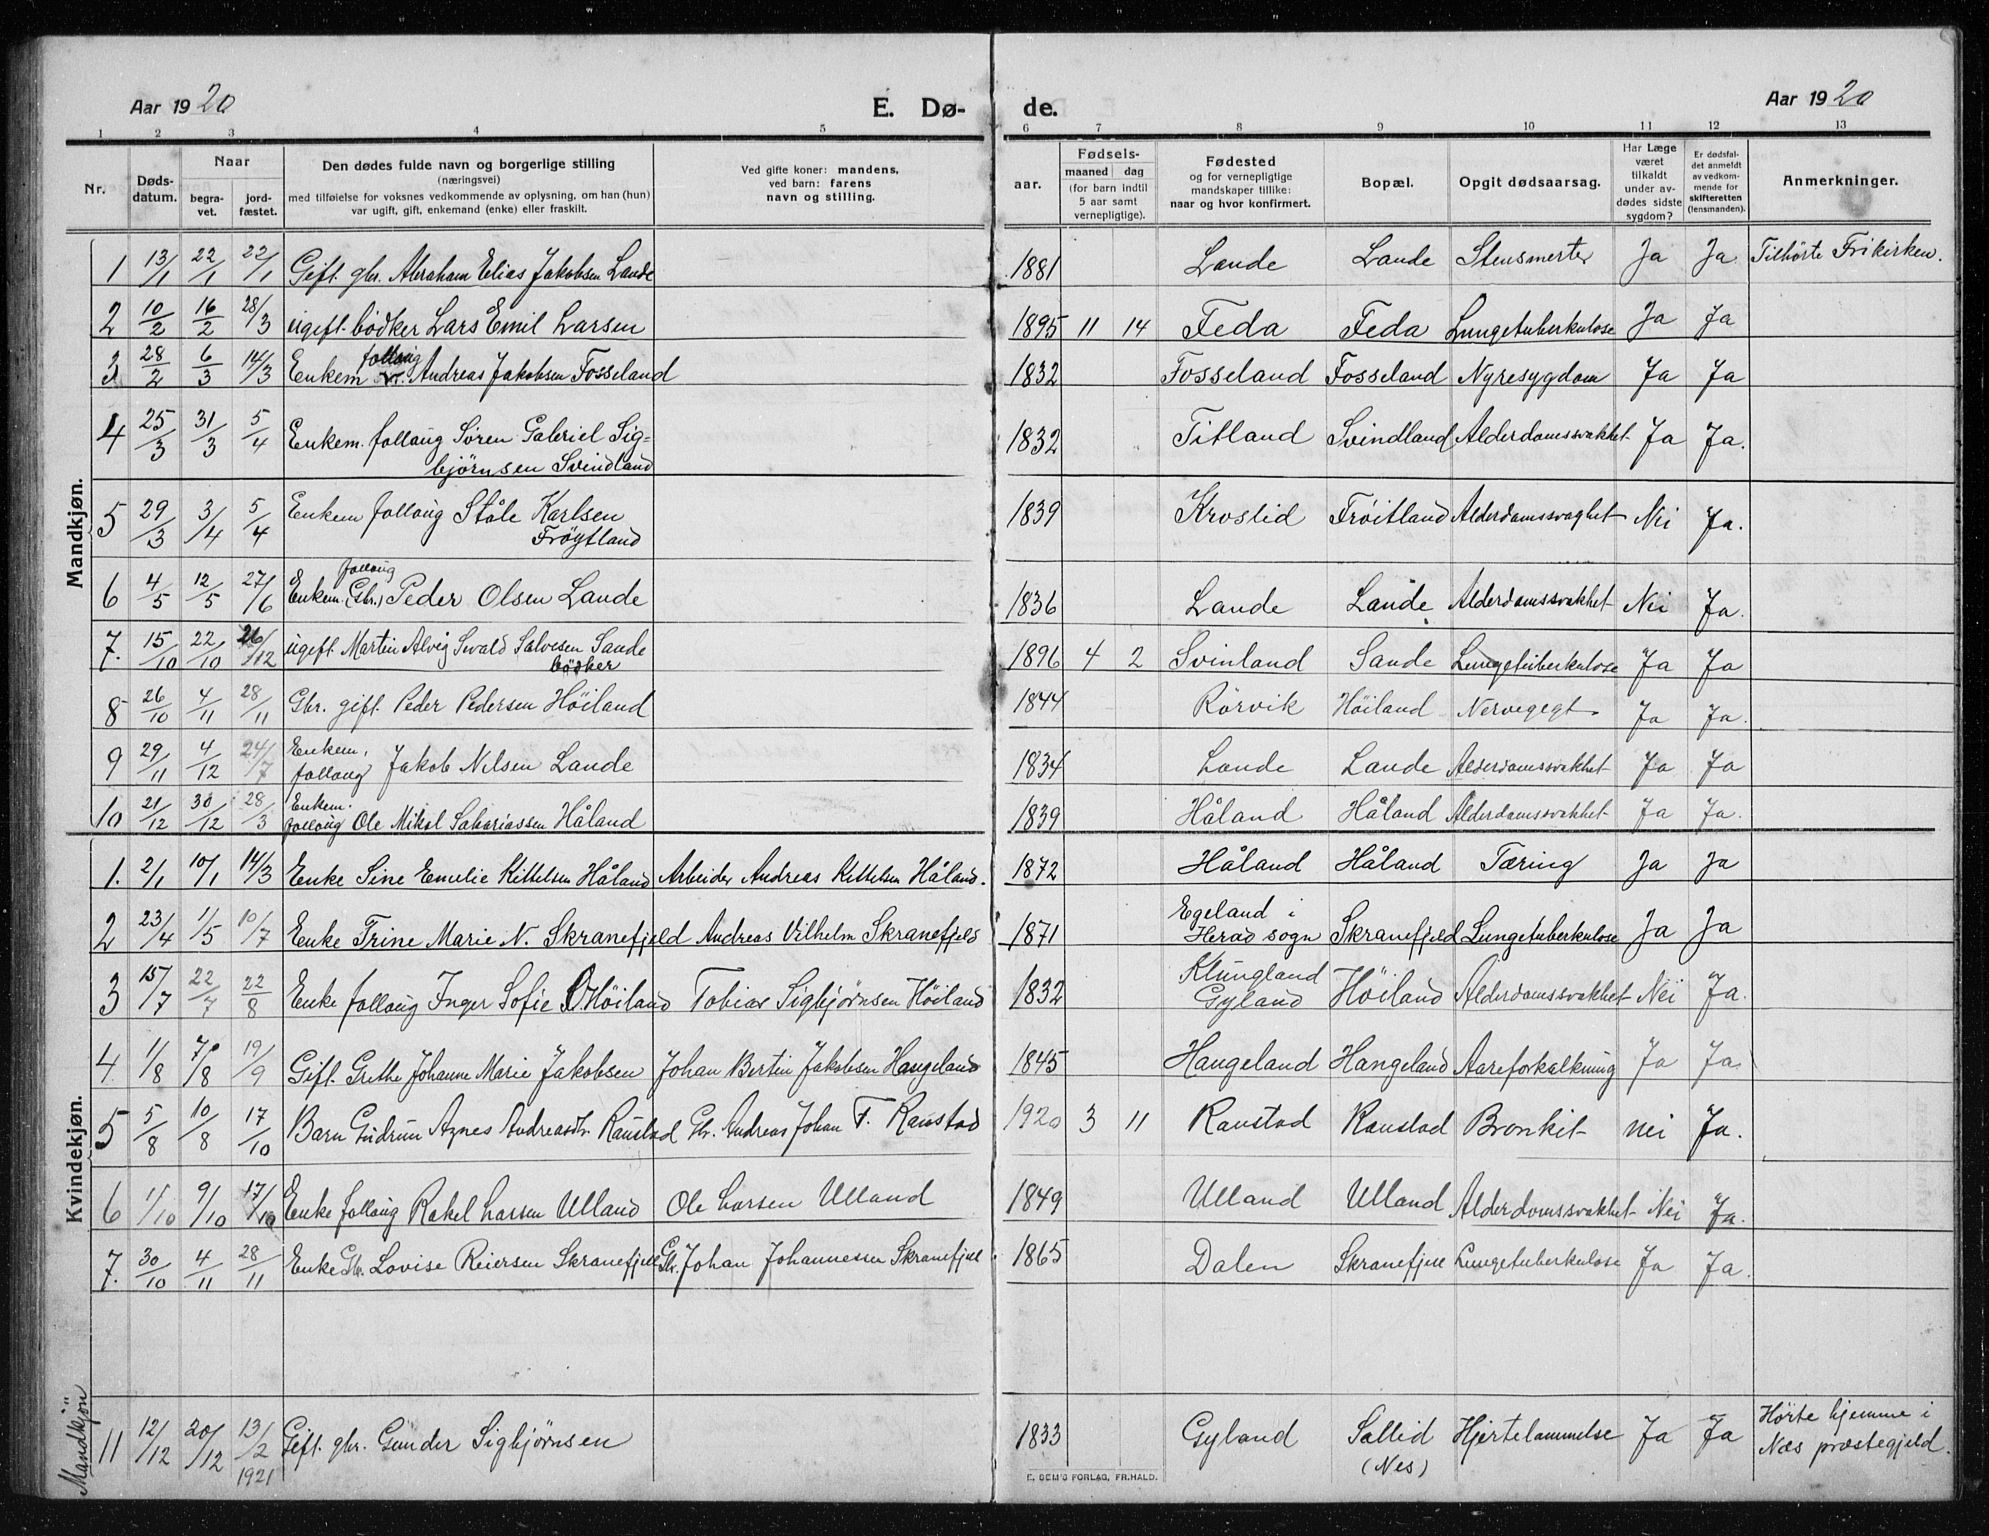 Aar 1920
E. Dø-
de.
Aar 1920
1 2 3 4 5 6 7 8 9 10 11 12 13
Nr.
Døds-
datum.
Naar
begra-
vet.
jord-
fæstet.
Den dødes fulde navn og borgerlige stilling
(næringsvei)
med tilføielse for voksnes vedkommende av oplysning, om han (hun)
var ugift, gift, enkemand (enke) eller fraskilt.
Ved gifte koner: mandens,
ved barn: farens
navn og stilling.
aar.
Fødsels-
maaned dag
(for barn indtil
5 aar samt
vernepligtige).
Fødested
og for vernepligtige
mandskaper tillike:
naar og hvor konfirmert.
Bopæl.
Opgit dødsaarsag.
Har Læge
været
tilkaldt
under av-
dødes sidste
sygdom?
Er dødsfal-
det anmeldt
av vedkom-
mende for
skifteretten
(lensmanden).
Anmerkninger.
Mandkjøn.
1 13/1 22/1 22/1 Gift. gbr. Abraham Elias Jakobsen Lande 1881 Lande Lande Stensmerter Ja Ja Tilhørte Frikirken.
2 10/2 16/2 28/3 ugift. bödker Lars Emil Larsen 1895 11 14 Feda Feda Lungetuberkulose Ja Ja
follaug
3 28/2 6/3 14/3 Enkem Andreas Jakobsen Fosseland 1832 Fosseland Fosseland Nyresygdom Ja Ja
4 25/3 31/3 5/4 Enkem. follaug Søren Gabriel Sig= 1832 Titland Svindland Alderdomssvakhet Ja Ja.
bjørnsen Svindland
5 29/3 3/4 5/4 Enkem follaug Ståle Karlsen 1839 Kroslid Frøitland Alderdomssvaghet Nei Ja.
Frøytland
follaug
6 4/5 12/5 27/6 Enkem. (Gbr.) Peder Olsen Lande 1836 Lande Lande Alderdomssvakhet Nei Ja.
7. 15/10 22/10 26/12 ugift Martin Alvig Sevald Salvesen Sande 1896 4 2 Svinland Sande Lungetuberkulose Ja Ja
bödker
8 26/10 4/11 28/11 Gbr. gift. Peder Pedersen Høiland 1844 Rørvik Høiland Nervegigt. Ja Ja.
Enkem.
9 29/11 4/12 24/7 follaug Jakob Nilsen Lande 1834 Lande Lande Alderdomssvakhet Ja Ja
Enkem.
10 21/12 30/12 28/3 follaug Ole Mikal Sakariassen Håland 1839 Håland Håland Alderdomssvakhet Ja Ja.
Kvindekjøn.
1. 2/1 10/1 14/3 Enke Sine Emelie Kittelsen Håland Arbeider Andreas Kittelsen Håland. 1872 Håland Håland Tæring Ja Ja
Egeland i
2 23/4 1/5 10/7 Enke Trine Marie N. Skranefjeld Andreas Vilhelm Skranefjeld 1871 Herad sogn Skranefjeld Lungetuberkulose Ja Ja
Klungland
3 15/7 22/7 22/8 Enke follaug Inger Sofie Høiland Tobias Sigbjørnsen Høiland 1832 Gyland Høiland Alderdomssvakhet Nei Ja.
4 1/8 7/8 19/9 Gift. Grethe Johanne Marie Jakobsen Johan Bertin Jakobsen Haugeland 1845 Haugeland Haugeland Aareforkalkning Ja Ja
5 5/8 10/8 17/10 Barn Gudrun Agnes Andreasdtr. Raustad Gbr. Andreas Johan T. Raustad 1920 3 11 Raustad Raustad Bronkit nei Ja.
6 1/10 9/10 17/10 Enke follaug Rakel Larsen Ulland Ole Larsen Ulland 1849 Ulland Ulland Alderdomssvakhet Nei Ja.
7. 30/10 4/11 28/11 Enke Gbr. Lovise Reiersen Skranefjell Gbr. Johan Johannessen Skranefjell 1865 Dalen Skranefjell Lungetuberkulose Ja Ja.
Mandkjön
11 12/12 20/12 13/2 1921 Gift. gbr. Gunder Sigbjørnsen 1833 Gyland Sallid Hjertelammelse Ja Ja Hørte hjemme i
(Nes) Næs præstegjeld.
E. SEM'S FORLAG, FR.HALD.